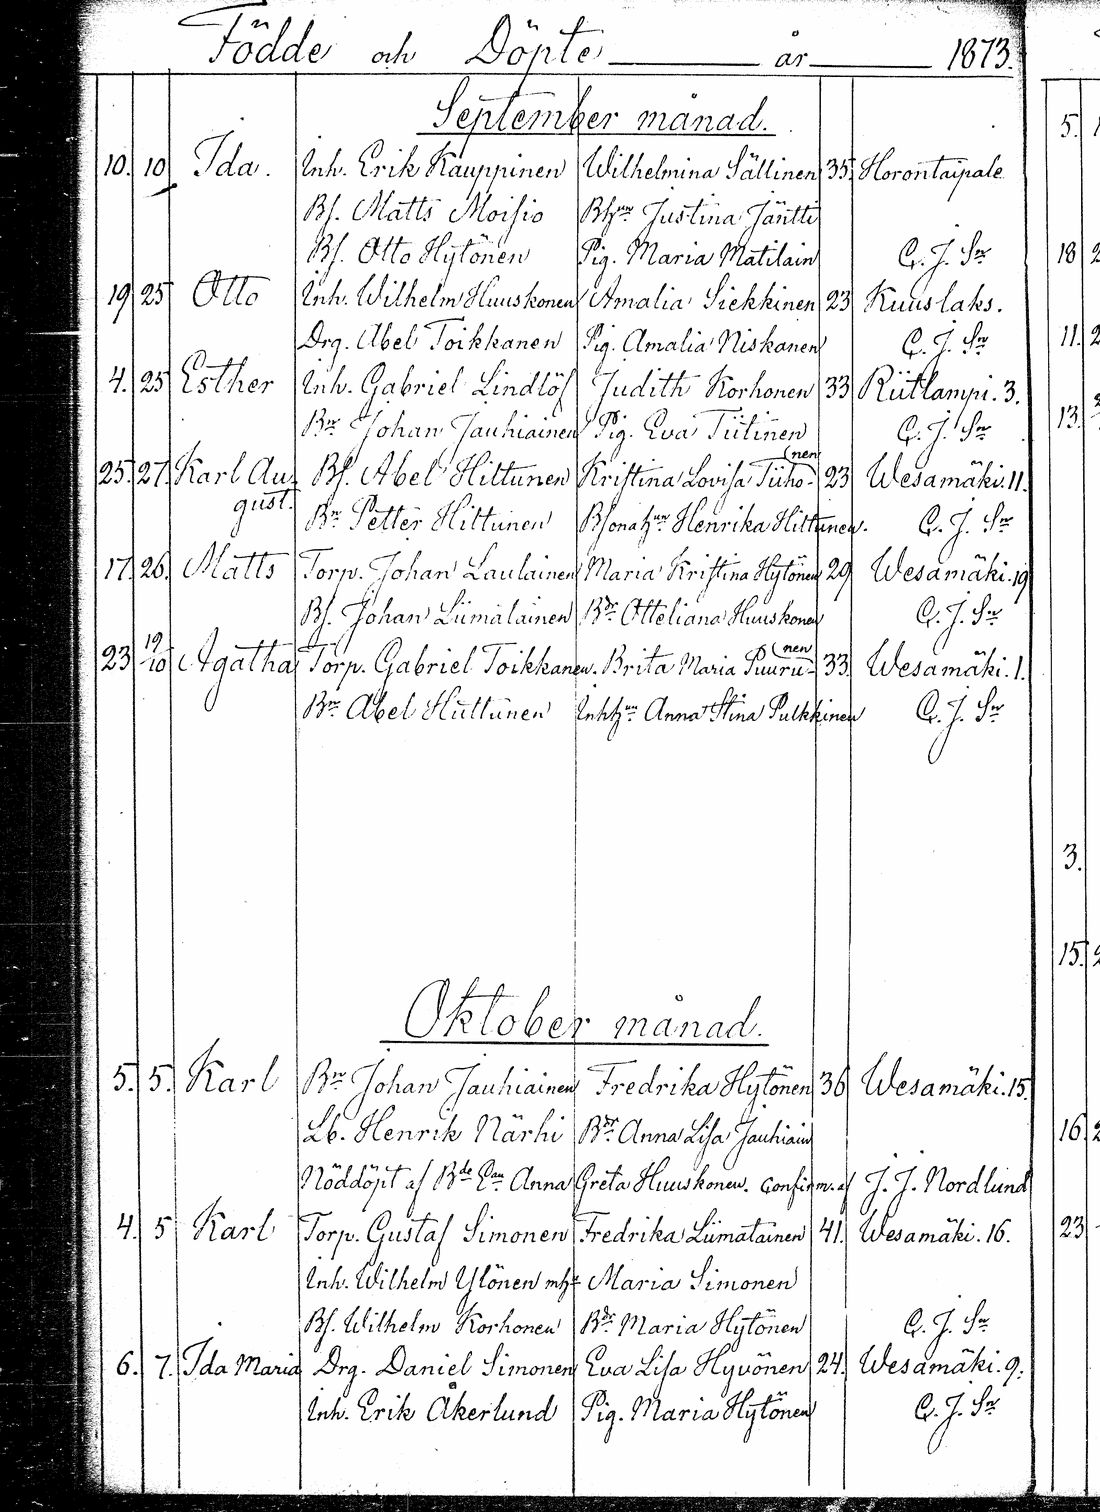 Födde och Döpte år 1873.
September månad.
10. 10 Ida. Inh. Erik Kauppinen Wilhelmina Sällinen 35. Horontaipale
Bs. Matts Moisio Bhzun Justina Jäntti
Bs. Otto Hytönen Pig. Maria Matilain C. J. Sn
19 25 Otto Inh. Wilhelm Huuskonen Amalia Siekkinen 23 Kuuslaks.
Drg. Abel Toikkanen Pig. Amalia Niskanen C. J. Sn
4. 25 Esther Inh. Gabriel Lindlöf Judith Korhonen 33 Riitlampi. 3.
Bn Johan Jauhiainen Pig. Eva Tiitinen C. J. Sn
25. 27. Karl Au- Bs. Abel Hiltunen Kristina Lovisa Tiiho- (nen 23 Wesamäki. 11.
gust. Bn Petter Hiltunen Bsonahzun Henrika Hiltunen. C. J. Sn
17. 26. Matts Torp. Johan Laulainen Maria Kristina Hytönen 29 Wesamäki. 19
Bs. Johan Liimatainen Bdr Otteliana Huuskonen C. J. Sn
23 19/10 Agatha Torp. Gabriel Toikkanen. Brita Maria Puuru- (nen 33. Wesamäki. 1.
Bn Abel Huttunen Inhhzun Anna Stina Pulkkinen C. J. Sn
Oktober månad.
5. 5. Karl Bn Johan Jauhiainen Fredrika Hytönen 36 Wesamäki. 15.
Lb. Henrik Närhi Bdr Anna Lisa Jauhiain
Nöddöpt af Bde Anna Greta Huuskonen. Confirm. af J. J. Nordlund
4. 5 Karl Torp. Gustaf Simonen Fredrika Liimatainen 41. Wesamäki. 16.
Inh. Wilhelm Ylönen mh Maria Simonen
Bs. Wilhelm Korhonen Bdr Maria Hytönen C. J. Sn
6. 7. Ida Maria Drg. Daniel Simonen Eva Lisa Hyvönen 24. Wesamäki. 9.
Inh. Erik Åkerlund Pig. Maria Hytönen C. J. Sn
5.
18
11.
13.
3.
15.
16
23